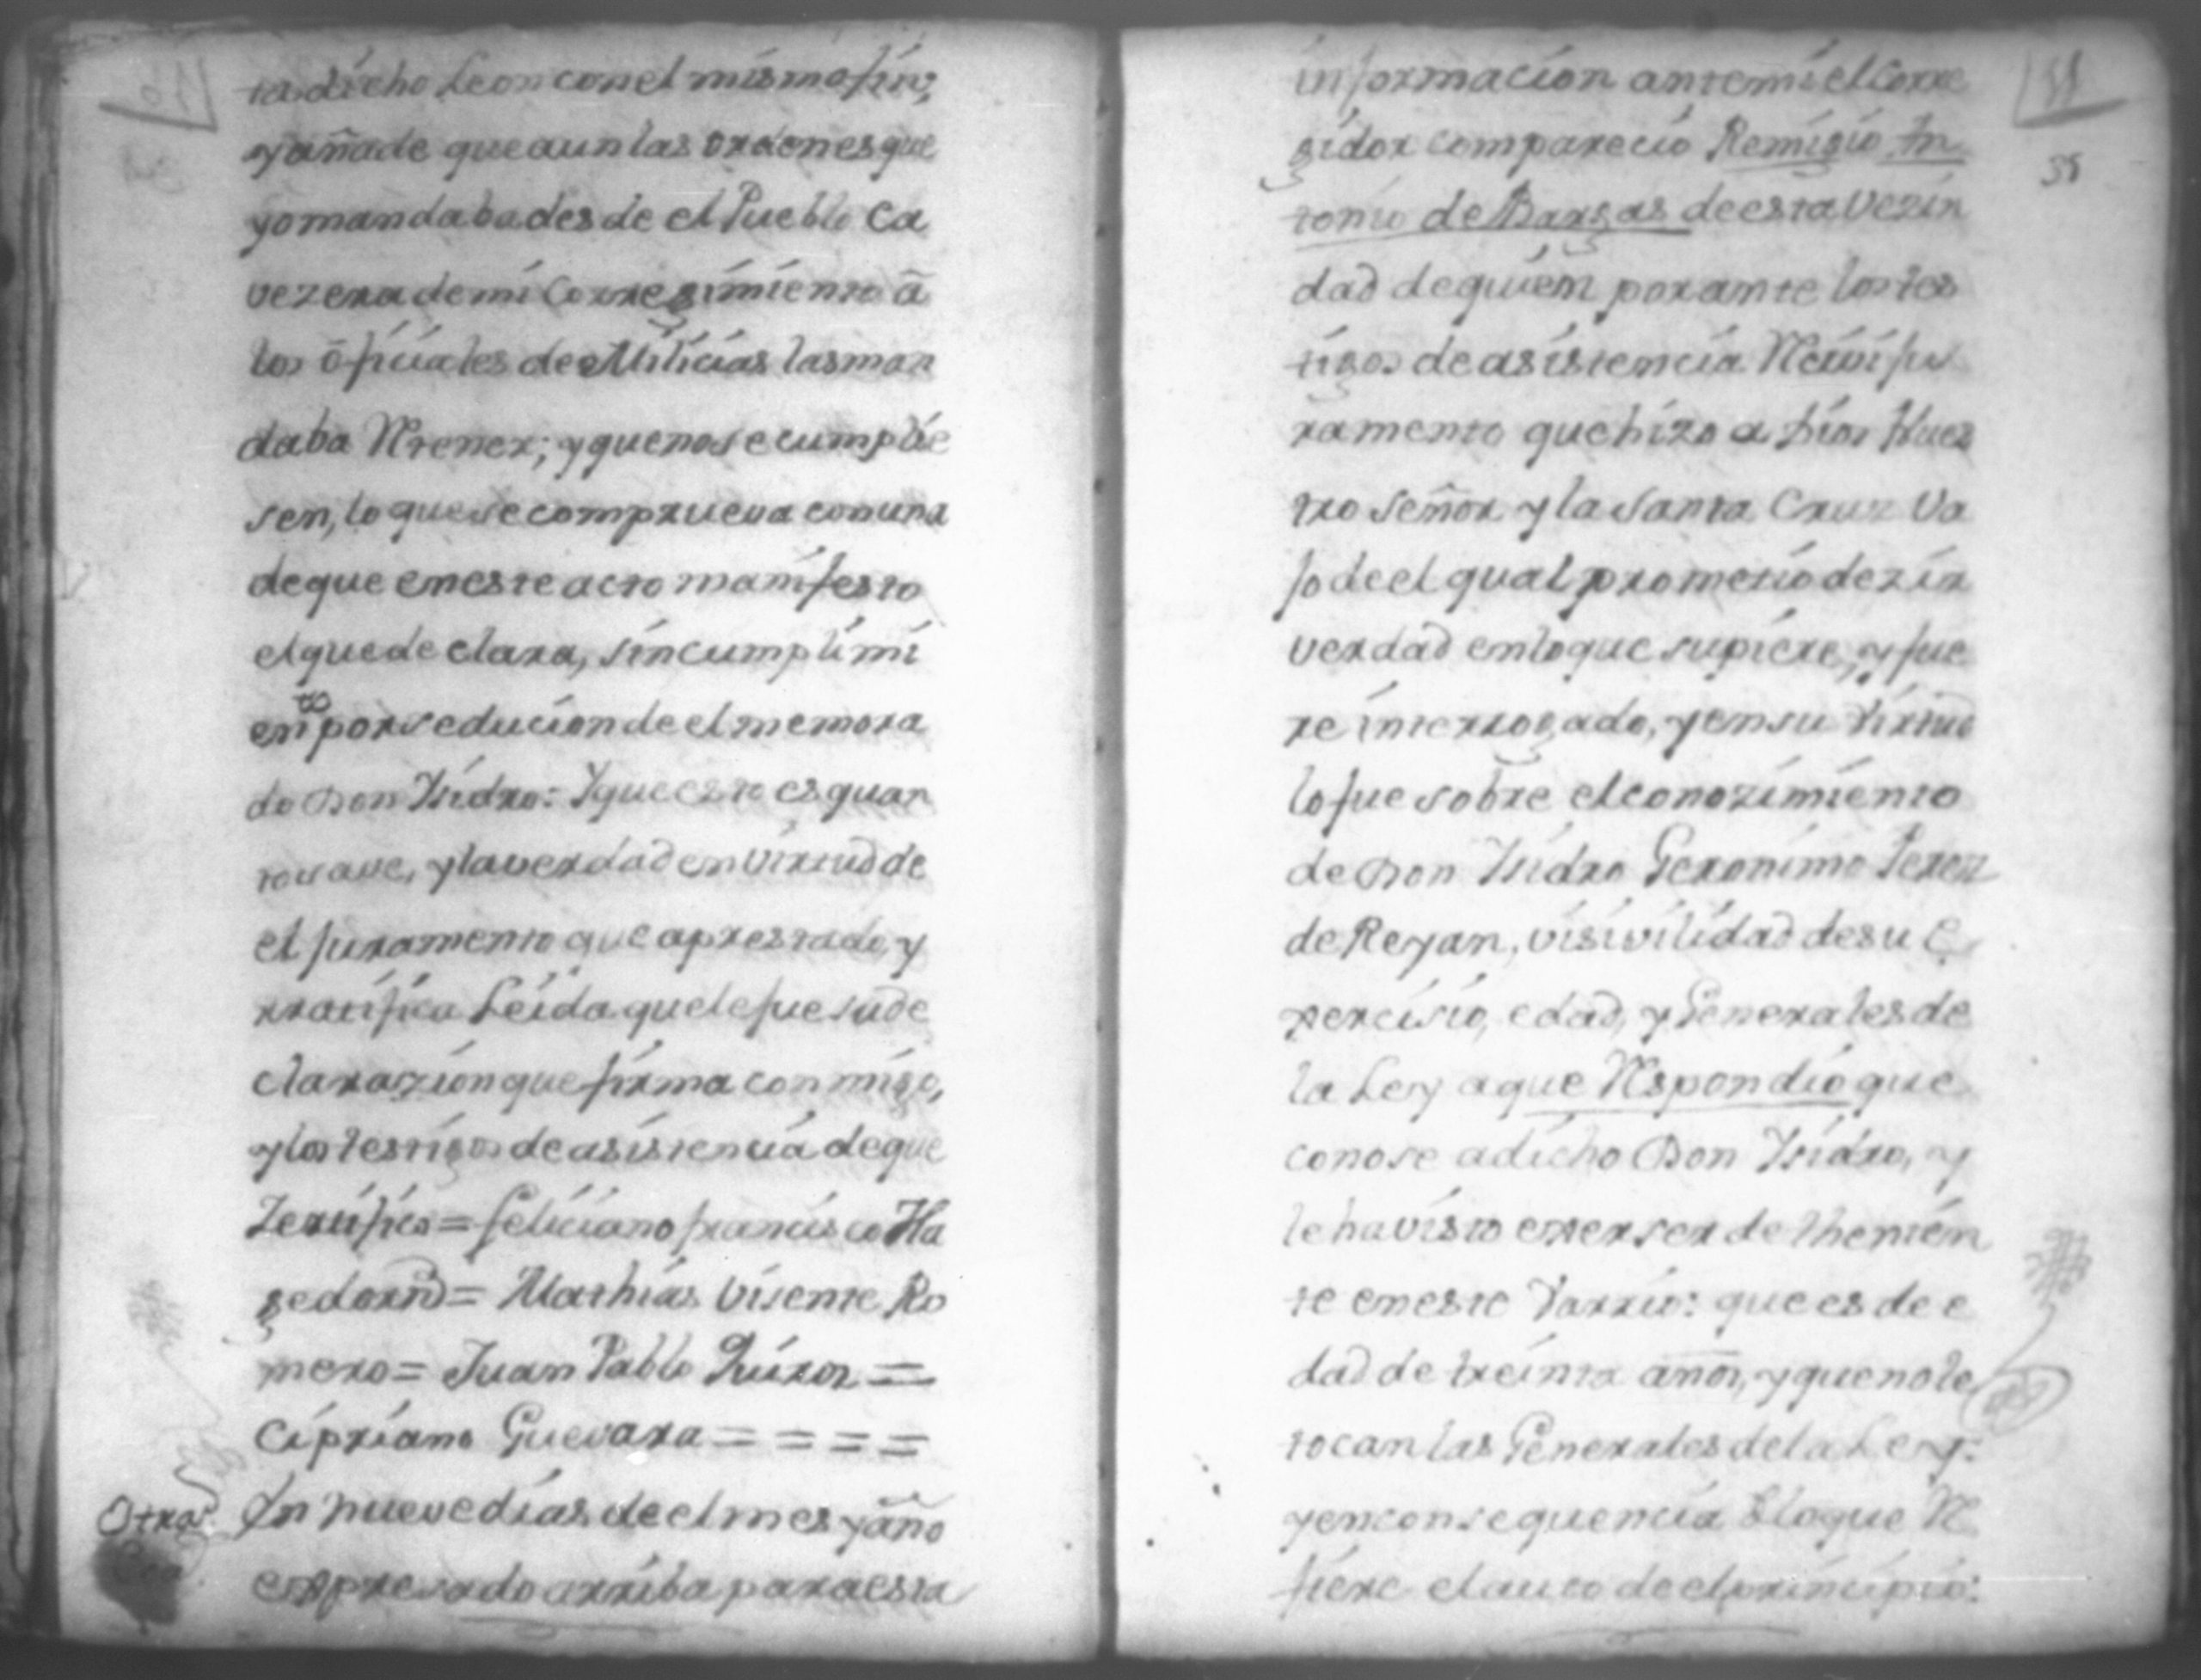 ta dicho Leon con el mismo fin;
y añade que aun las ordenes que
yo mandaba desde el Pueblo Ca
vezera de mi Corregimiento â
los ôficiales de Milicias las man
daba Retener; y que no se cumplie
sen, lo que se comprueva con una
de que en este acto manifesto
el que declara, sin cumplimi
en^to por seducion de el memora
do Don Ysidro: Y que esto es quan
to save, y la verdad en virtud de
el juramento que a prestado, y
rratifica Leida que le fue su de
clarazion que firma conmigo,
y los testigos de asistencia de que
Zertifico = Feliciano Francisco Ma
Mathias Visente Ro
mero = Juan Pablo Quiros =
Cipriano Guevara = = = =
Otra
En nueve dias de el mes y año
expresado arriba para esta
35
informacion ante mi el Corre
gidor comparecio Remigio An
tonio de Bargas de esta Vezin
dad de quien por ante los tes
tigos de asistencia Recivi ju
ramento que hizo a Dios Nues
tro Señor y la Santa Cruz va
jo de el qual prometio dezir
verdad en lo que supiere, y fue
re interrogado, y en su Virtud
lo fue sobre el conozimiento
de Don Ysidro Geronimo Perez
de Reyan, visivilidad de su E
percisio, edad, y Generales de
la Ley a que Respondio que
conose a dicho Don Ysidro, y
le ha visto exerser de Thenien
te en este Varrio: que es de e
dad de treinta años, y que no le
tocan las Generales de la Ley:
y en consequencia â lo que Re
fiere el auto de el principio: